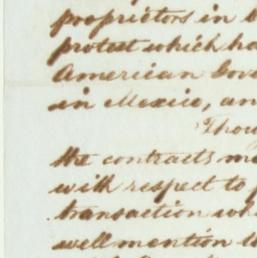 proprietors in
protest which ha
American Gov
in Mexico, an
Thou
the contracts m
with respect to
transaction wh
well mention t